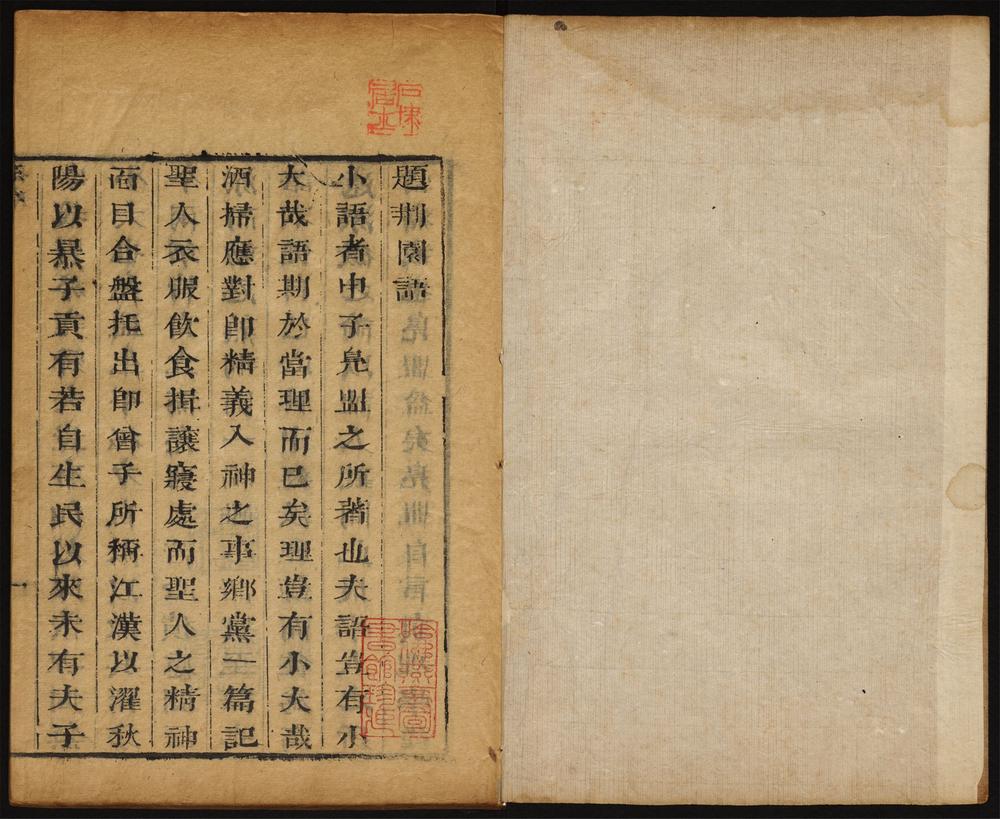 題荆園語
小語者申子鳧盟之所著也夫語豈有小
大哉語期於當理而已矣理豈有小大哉
洒掃應對卽精義入神之事鄉黨一篇記
聖人衣服飲食揖讓寢處而聖人之精神
面目合盤托出卽曾子所稱江漢以濯秋
陽以暴子貢有若自生民以來未有夫子